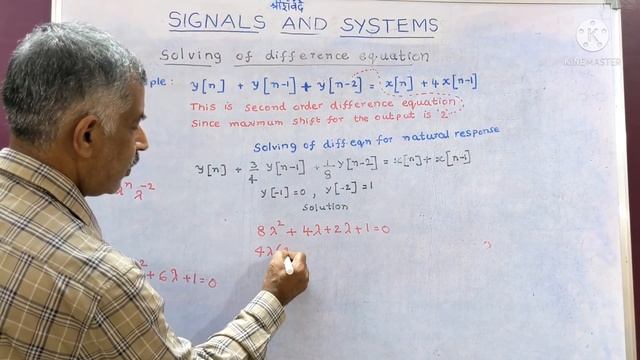 SIGNALS AND SYSTEMS
KINEMASTER
Solving of difference equation
ple: y[n] + y[n-1] + y[n-2] = x[n] + 4x[n-1]
This is second order difference equation
Since maximum shift for the output is '2'
Solving of diff eqn for natural response
y[n] + 3/4 y[n-1] + 1/8 y[n-2] = x[n] + x[n-1]
y[-1]=0 , y[-2]=1
λⁿ λ⁻²
Solution
8λ² + 4λ + 2λ + 1 = 0
4λ(
² + 6λ + 1 = 0